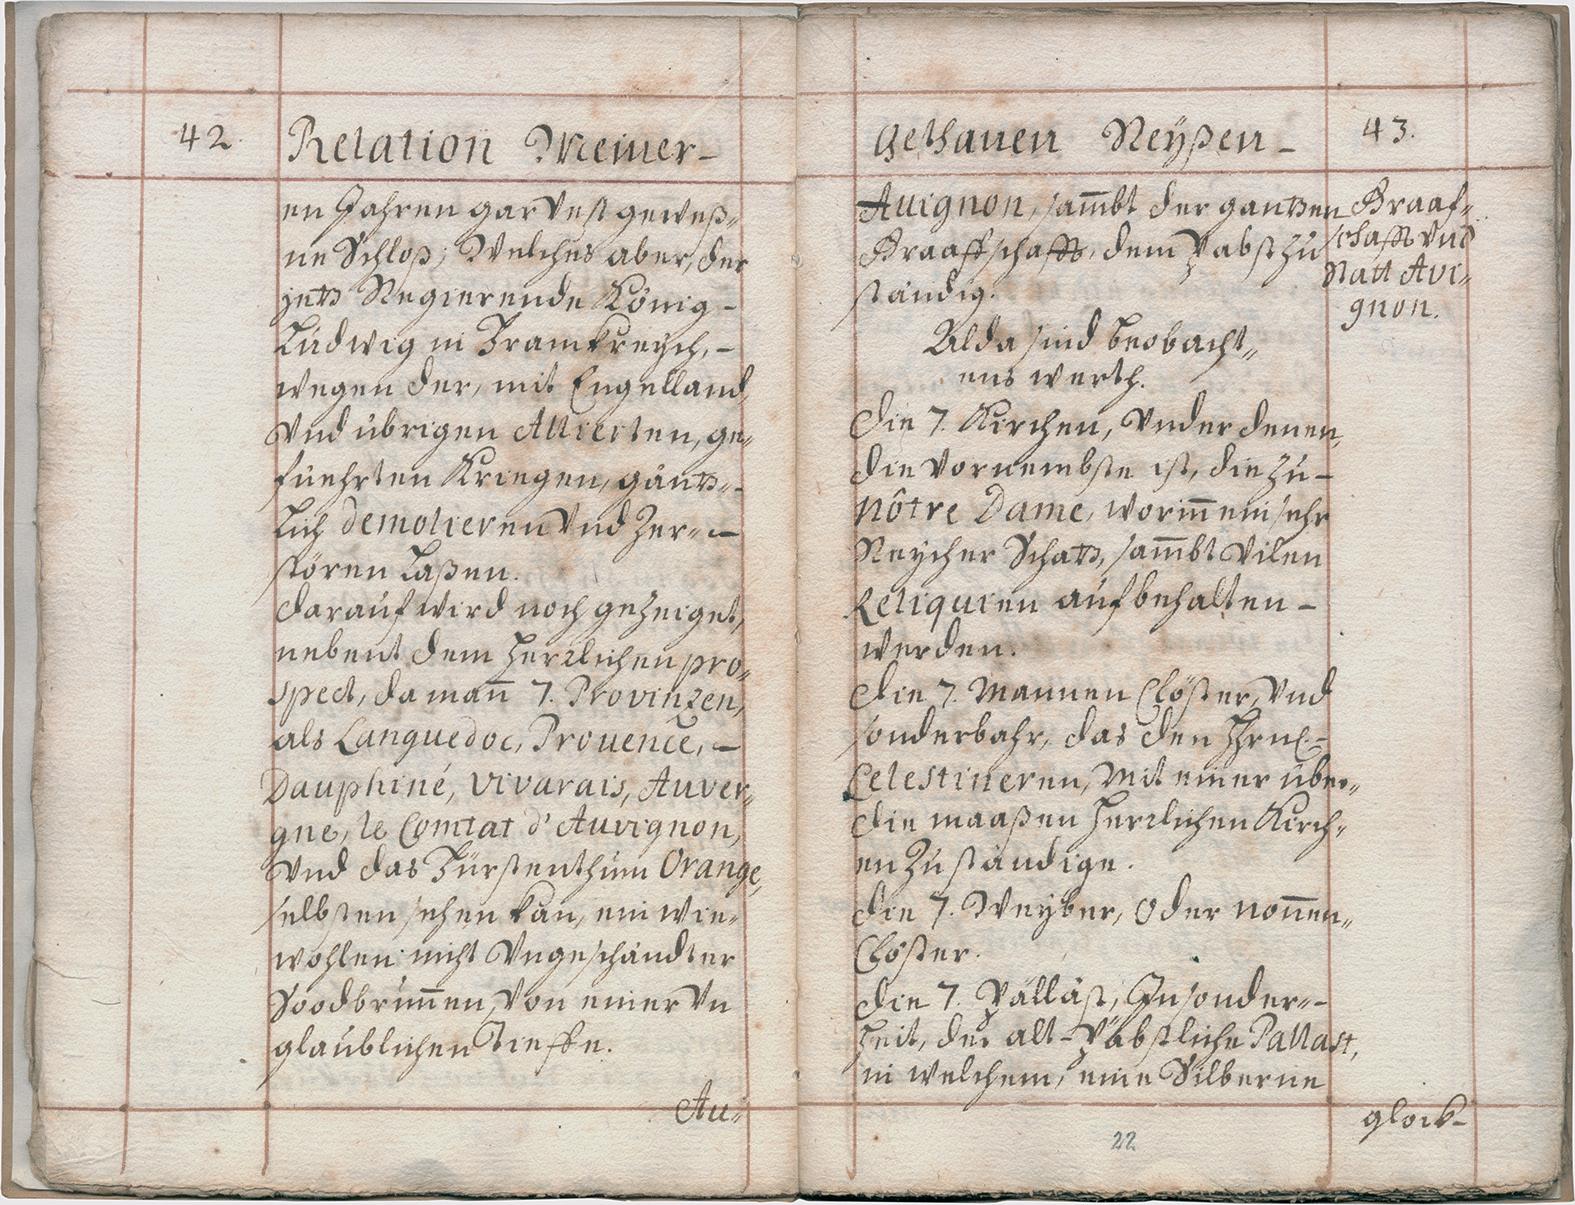 42.
Relation Meiner-
en Jahren gar Vest geweß„
ne Schloß; Welches aber, der
jetz Regierende König-
Ludwig in Franckreych, -
wegen der, mit Engelland
Vnd übrigen Allierten, ge„
fuehrten Kriegen, gäntz„-
lich demolieren Vnd Zer„-
stören Laßen.
darauf wird noch gezeiget,
nebent dem herrlichen pro„
spect, da mañ 7. Provinzen,
als Languedoc, Provence, -
Dauphiné, Vivarais, Auver„
gne, le Comtat d'Auvignon,
Vnd das Fürstenthum Orange,
selbsten sehen kan, ein wie„
wohlen nicht Vngeschändter
Soodbruñen, Von einer Vn
glaublichen Tieffe.
Au„
Gethanen Reyßen-
43.
Auignon, sam̃bt der gantzen
Graaffschafft, dem Pabst zu
ständig.
Graaf„
schafft Vnd
Statt Avi„
gnon.
Alda sind beobacht„
ens werth.
Die 7. Kirchen, Vnder denen,
die Vornembste ist, die zu-
Nôtre Dame, woriñ ein sehr
Reycher Schatz, sam̃bt Vilen
Reliquien aufbehalten-
werden.
Die 7. Mannen Clöster, Vnd
sonderbahr, das den Hrn.-
Celestineren, Mit einer über„
die maaßen herrlichen Kirch„
en Zuständige.
Die 7. Weyber, oder noñen„
Clöster.
Die 7. Palläst, Insonder„-
heit, der alt-Päbstliche Pallast,
in welchem, eine Silberne
glock-
22